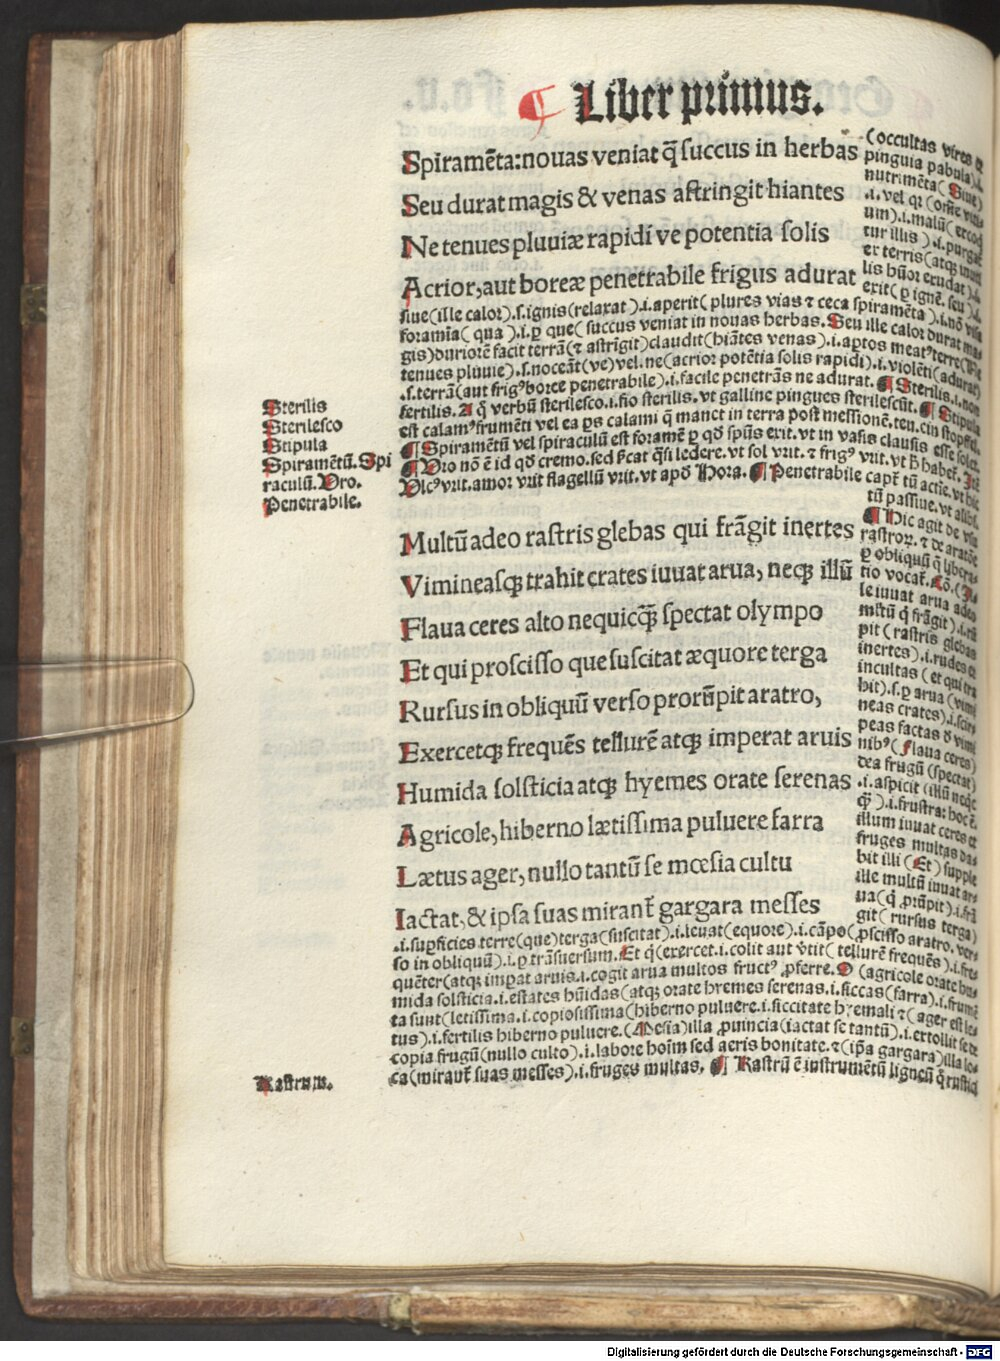 Liber primus.
Spiramēta:nouas veniat q̄ succus in herbas
Seu durat magis & venas astringit hiantes
Ne tenues pluuiæ rapidi ve potentia solis
Acrior,aut boreæ penetrabile frigus adurat
(occultas vires ⁊
pinguia pabula).i.
nutrimēta (Siue)
.i. vel qꝛ (oīne viti⸗
um).i.malū( excoq̄
tur illis ).i.purgat̄
er terris(atqꝫ inuti
lis hūor exudat).i.
exit( ꝑ ignē. seu ).i.
siue(ille calor).s.ignis(relaxat).i.aperit( plures vias ⁊ ceca spiramēta).i.nō visa
foramīa( qua ).i.ꝑ que( succus veniat in nouas herbas. Seu ille calor durat ma⸗
gis)duriorē facit terrā(⁊ astrīgit)claudit(hiātes venas).i.aptos meatꝰ terre(Ne
tenues pluuie).s.noceāt(ve)vel.ne(acrior potētia solis rapidi).i.violēti(adurat)
.s.terrā(aut frigꝰ boree penetrabile).i.facile penetrās ne adurat. ¶ Sterilis.i.non
fertilis. A q̄ verbū sterilesco.i.fio sterilis. vt galline pingues sterilescūt. ¶ Stipula
est calamꝰ frumēti vel ea ps calami q̄ manet in terra post messionē.
¶ Spiramētū vel spiraculū est foramē ꝑ qd̄ spūs exit. vt in vasis clausis esse solet.
¶ Vro nō ē id qd̄ cremo. sed
vrit. amor vrit flagellū vrit. vt apd̄ Hora. ¶ Penetrabile capt̄ tū actie. vt hic
tū passiue. vt alibi.
Sterilis
Sterilesco
Stipula
Spiramētū. Spi
raculū. Vro.
Penetrabile.
Multū adeo rastris glebas qui frāgit inertes
Vimineasqꝫ trahit crates iuuat arua, neqꝫ illū
Flaua ceres alto nequicq̄ꝫ spectat olympo
Et qui proscisso que suscitat æquore terga
Rursus in obliquū verso prorūpit aratro,
Exercetqꝫ frequēs tellurē atqꝫ imperat aruis
Humida solsticia atqꝫ hyemes orate serenas
Agricole,hiberno lætissima puluere farra
Lætus ager,nullo tantū se mœsia cultu
Iactat,& ipsa suas mirant̄ gargara messes
¶ Hic agit de vsu
rastroꝝ. ⁊ de aratiōe
ꝑ obliquū q̄
tio vocat̄. Cō. (Il⸗
le iuuat arua adeo
mltū q̄ frāgit).i.rū
pit ( rastris glebas
inertes).i.rudes ⁊
incultas (et qui tra
hit).s.ꝑ arua (vimi
neas crates).i.
peas factas d̄ vimi
nibꝰ( flaua ceres)
dea frugū (spectat)
.i.aspicit (illū neqꝫ
).i.frustra: hoc ē.
illum iuuat ceres et
fruges multas da⸗
bit illi (Et) supple
ille multū iuuat ar⸗
ua(q̄ prūpit).i.frā
git( rursus terga)
.i.supficies terre(que)terga(suscitat).i.leuat(equore).i.cāpo(ꝓscisso aratro. ver⸗
so in obliquū).i.ꝑ trāsuersum. Et q̄(exercet.i.colit aut vtit̄( tellurē frequēs).i.fre⸗
quēter(atqꝫ impat aruis.i.cogit arua multos fructꝰ ꝓferre. O (agricole orate hu⸗
mida solsticia.i.estates hūidas(atqꝫ orate hyemes serenas.i.siccas(farra).i.frumē
ta sunt(letissima.i.copiosissima(hiberno puluere.i.siccitate hyemali ⁊( ager est le⸗
tus).i.fertilis hiberno puluere. (Mesia)illa ꝓuincia(iactat se tantū).i.extollit se de
copia frugū(nullo culto).i.labore hoīm sed aeris bonitate. ⁊(ip̄a gargara)illa lo⸗
ca(mirant̄ suas messes).i.fruges multas. ¶ Rastrū ē instrumētū ligneū q̄ rustici
Rastrum.
Digitalisierung gefördert durch die Deutsche Forschungsgemeinschaft - DFG